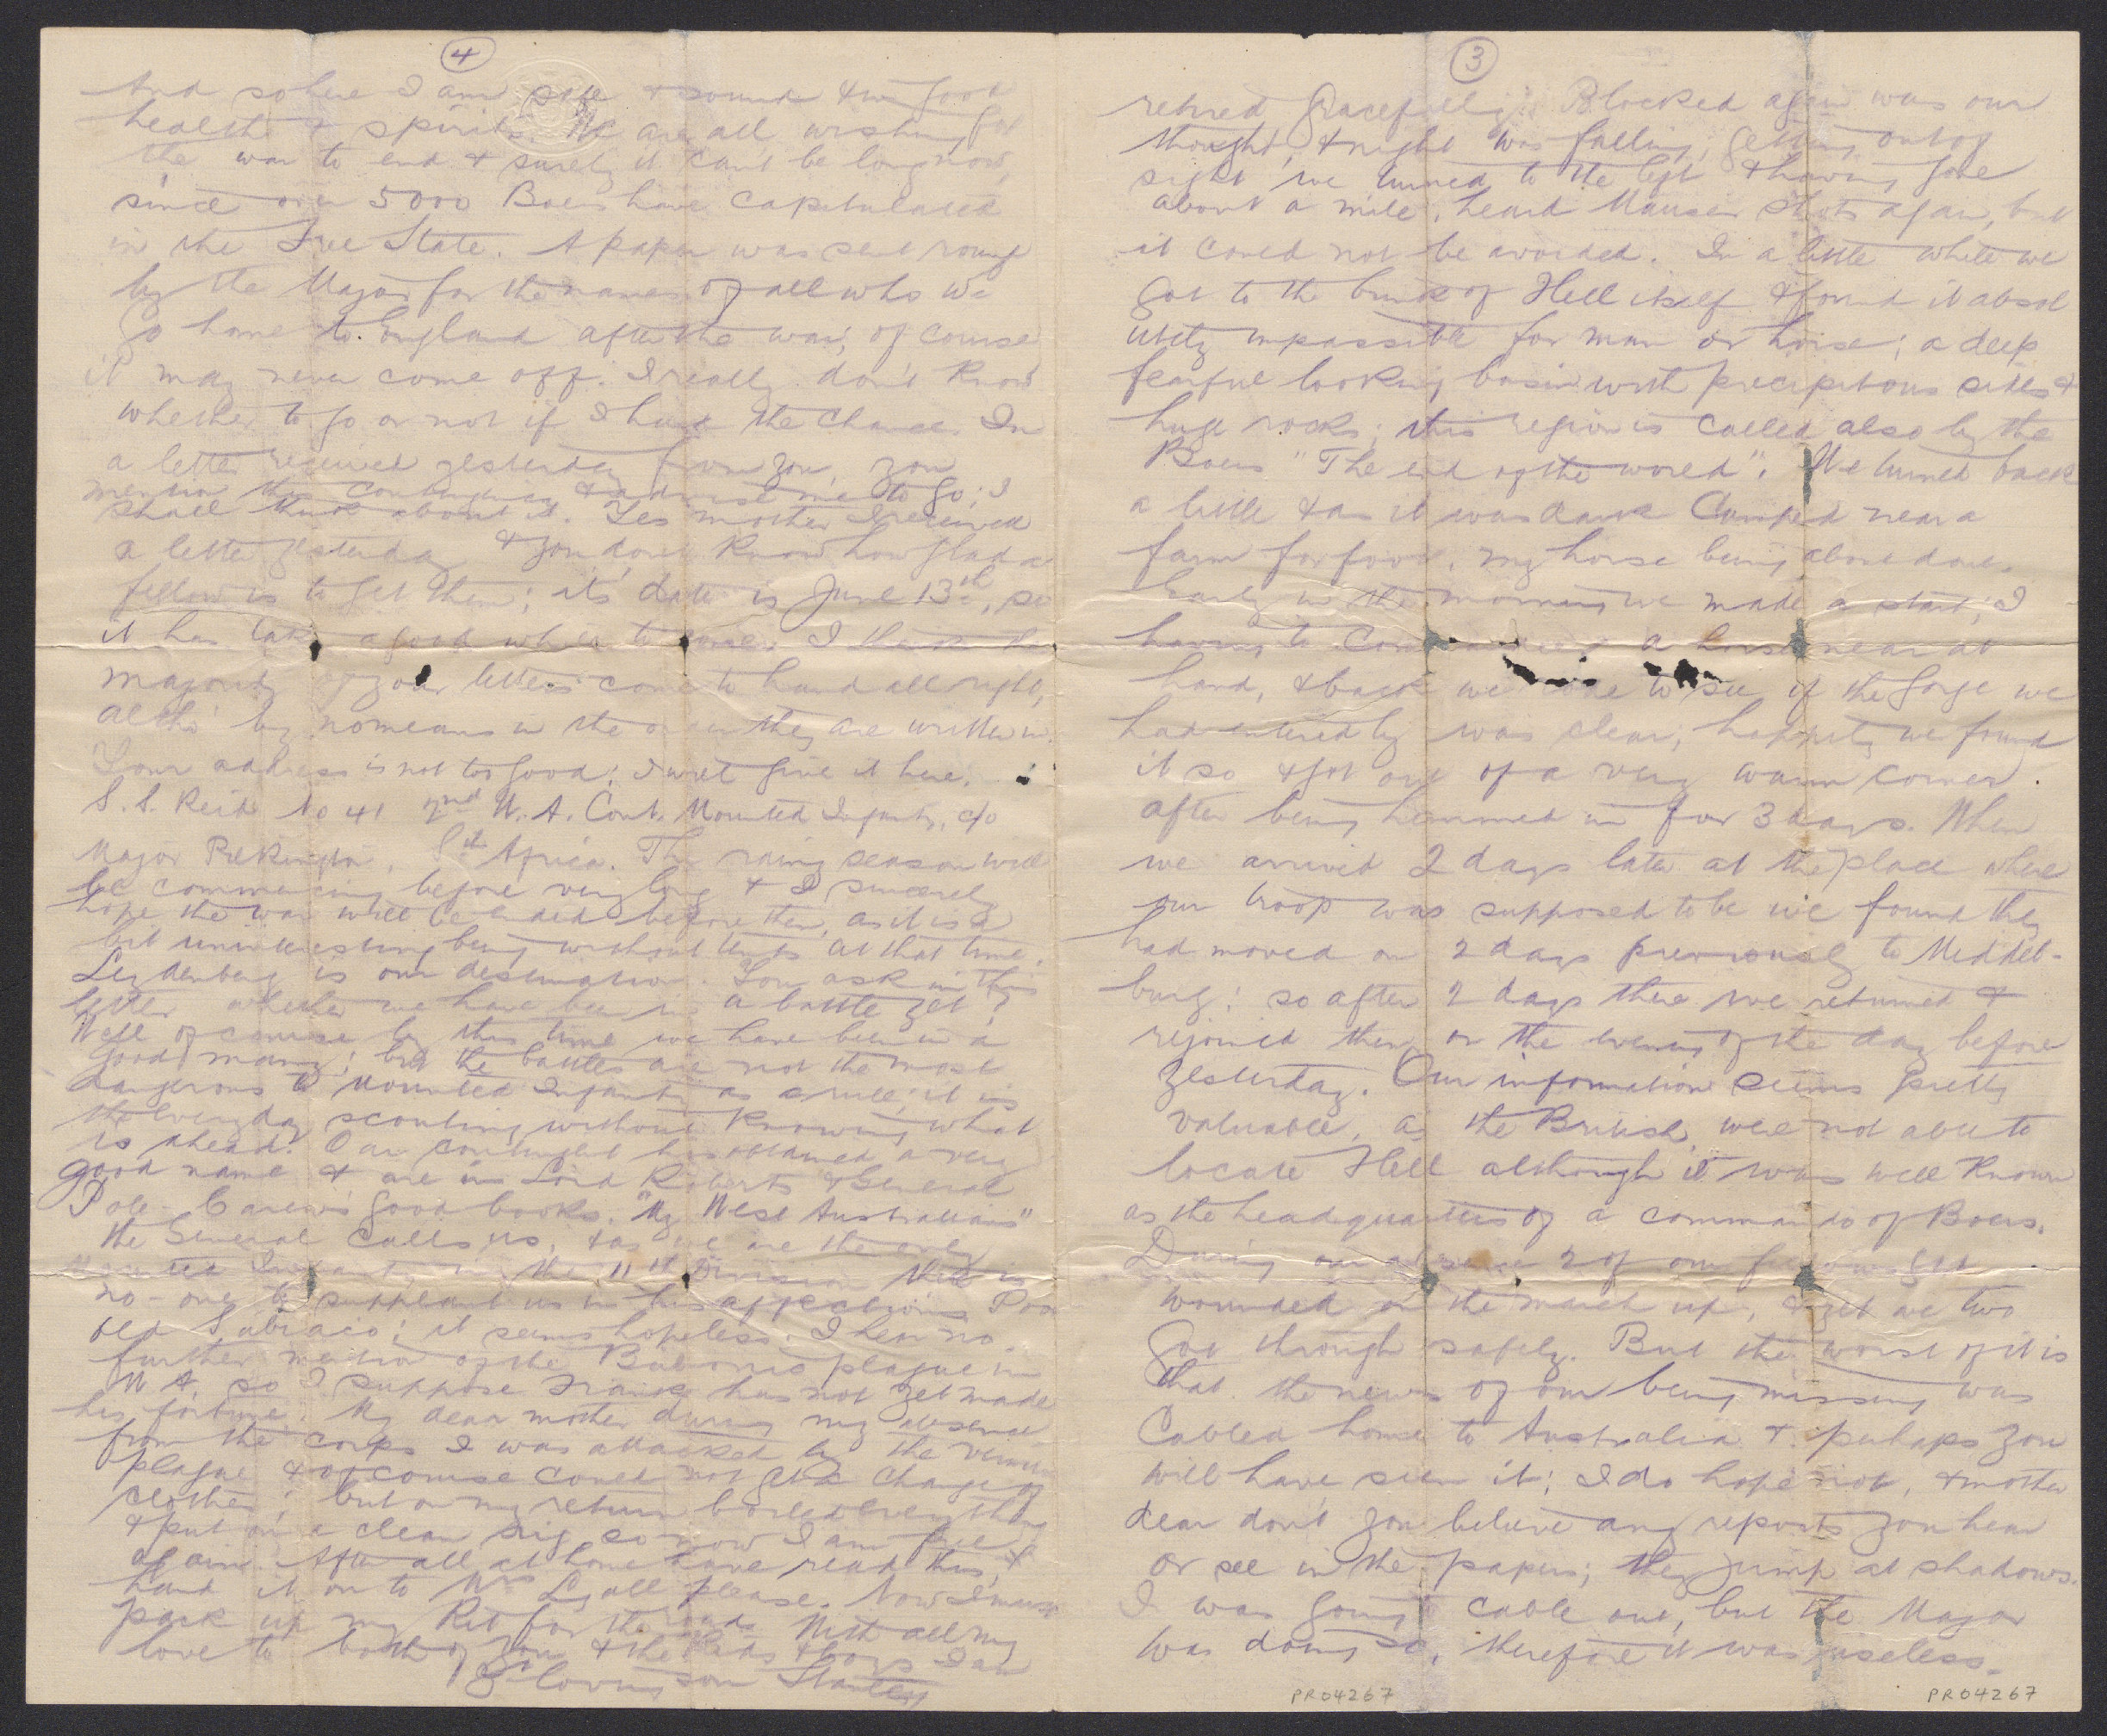 3
retired gracefully. Blocked again was our
thought, & night was falling; getting out of
sight we turned to the left & having gone
about a mile, heard Mauser shots again, but
it could not be avoided. In a little while we
got to the brink of Hell itself & found it absol
utely impassible for man or horse; a deep
fearful looking basin with precipitous sides &
huge rocks; this region is called also by the
Boers "The end of the world". We turned back
a little & as it was dark Camped near a
farm for food, my horse being about done.
Early in the morning we made a start; I
having to commandeer a horse near at
hand, & back we to see if the gorge we
had entered by was clear; happily we found
it so & got out of a very warm corner
after being hemmed in for 3 days. When
we arrived 2 days later at the place where
our troop was supposed to be we found they
had moved on 2 days previously to Middel-
burg; so after 2 days there we returned &
rejoined them on the evening of the day before
yesterday. Our information seems pretty
valuable, as the British were not able to
locate Hell although it was well known
as the headquarters of a commando of Boers.
During our absence 2 of our fellows got
wounded on the march up, & yet we two
got through safely. But the worst of it is
that the news of our being missing was
Cabled home to Australia & perhaps you
will have seen it; I do hope not, & mother
dear don't you believe any reports you hear
or see in the papers; they jump at shadows.
I was going cable out, but the Major
was doing so, therefore it was useless.
PR04267
4
And so here I am safe & sound & in good
health & spirits. We are all wishing for
the war to end & surely it can't be long now,
since over 5000 Boers have capitulated
in the Free State. A paper was sent round
by the Major for the names of all who wd
go home to England after the war, of course
it may never come off. I really don't know
whether to go or not if I had the chance. In
a letter received yesterday from you, you
mention this contingency & advise me to go; I
shall think about it. Yes mother I received
a letter yesterday & you don't know how glad a
fellow is to get them; it's date is June 13th, so
it has taken a good while to come. I think the
majority of your letters come to hand all right,
altho' by no means in the order they are written in.
Your address is not too good; I will give it here.
S. S. Reid No 41 2nd W. A. Cont. Mounted Infantry, c/o
Major Pilkington, Sth Africa. The rainy season will
be commencing before very long & I sincerely
hope the war will be ended before then, as it is a
bit uninteresting being without tents at that time.
Leydenberg is our destination. You ask in this
letter whether we have been in a battle yet?
Well of course by this time we have been in a
good many; but the battles are not the most
dangerous to Mounted Infantry as a rule; it is
the everyday scouting without knowing what
is ahead. Our contingent has obtained a very
good name & are in Lord Roberts & General
Pole-Carew's good books. "My West Australians"
the General calls us, & as we are the only
Mounted Infantry in the 11th Division there is
no-one to supplant us in his affections. Poor
old Subiaco; it seems hopeless. I hear no
further mention of the Bubonic plague in
W A. so I suppose Frank has not yet made
his fortune. My dear mother during my absence
from the corps I was attacked by the vermin
plague & of course could not get a change of
clothes; but on my return boiled everything
& put on a clean rig so now I am free
again. After all at home have read this,
hand it on to Mrs Lyall please. Now I must
pack up my kit for the road. With all my
love to both of you & the kids & boys I am
Yr loving son Stanley
PR04267